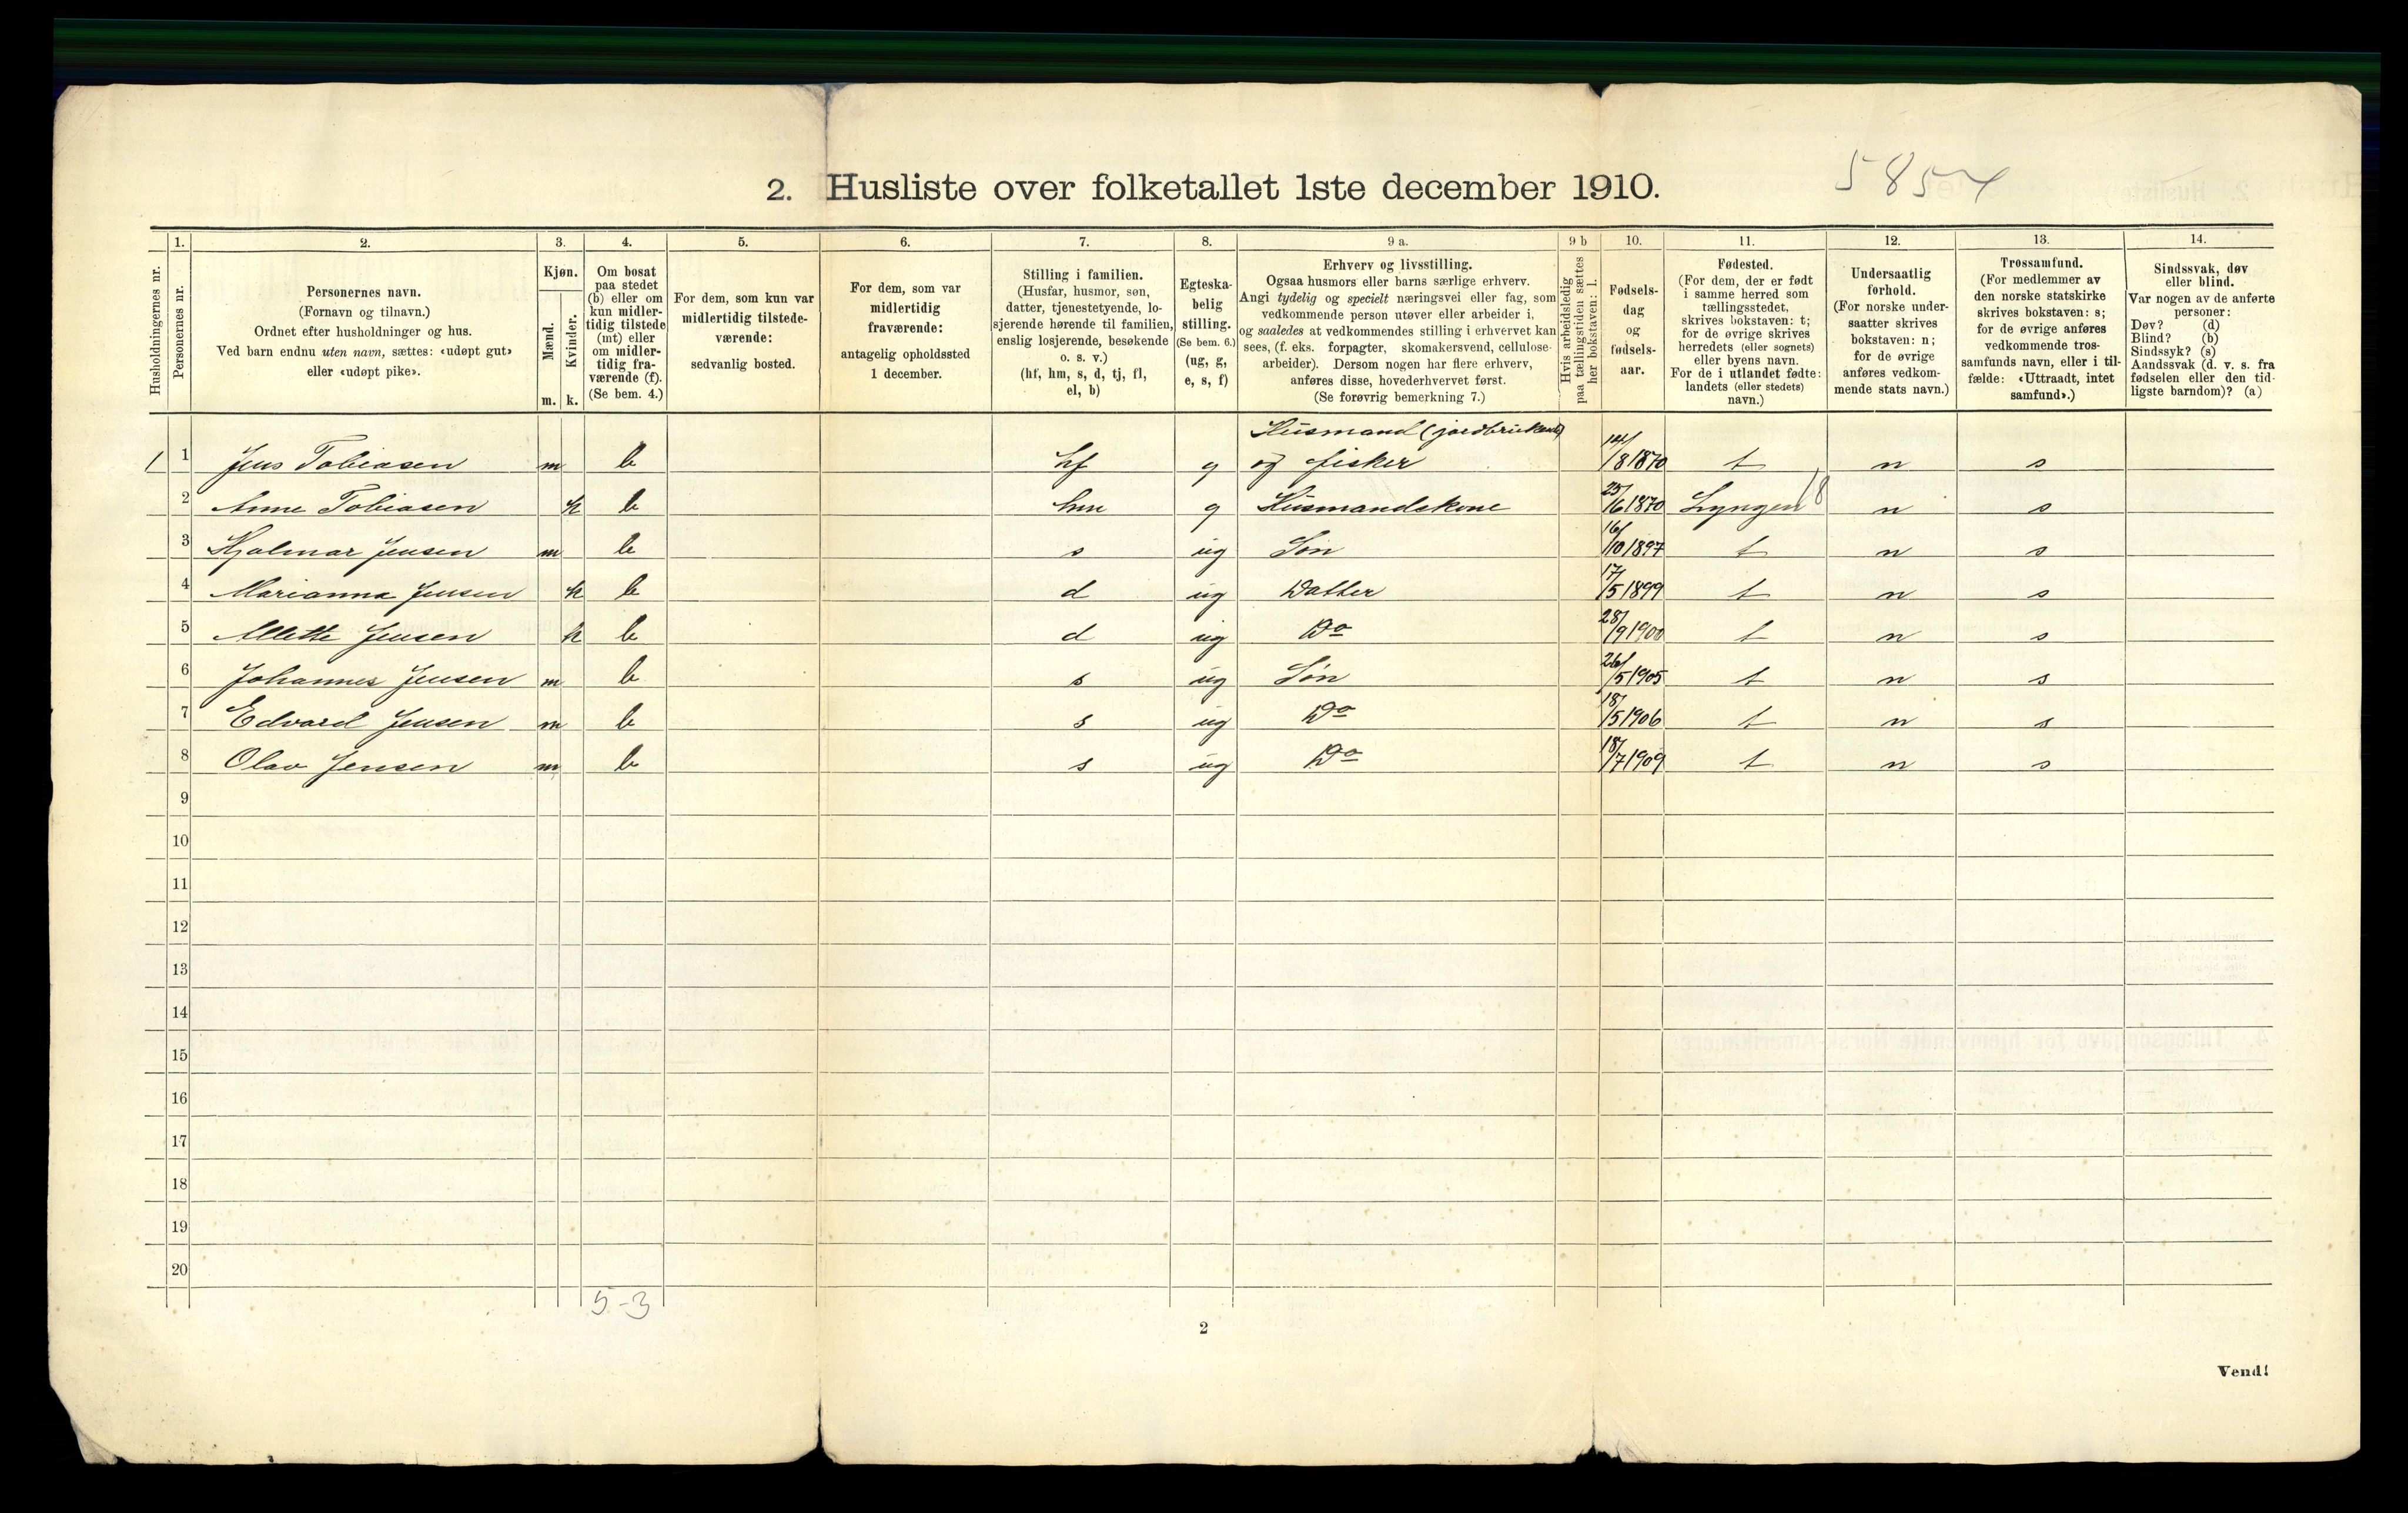 2. Husliste over folketallet 1ste december 1910.
5854
1. 2. 3. 4. 5. 6. 7. 8. 9 a. 9 b 10. 11. 12. 13. 14.
Husholdningernes nr.
Personernes nr.
Personernes navn.
(Fornavn og tilnavn.)
Ordnet efter husholdninger og hus.
Ved barn endnu uten navn, sættes: «udøpt gut»
eller «udøpt pike».
Kjøn.
Mænd.
Kvinder.
m. k.
Om bosat
paa stedet
(b) eller om
kun midler-
tidig tilstede
(mt) eller
om midler-
tidig fra-
værende (f).
(Se bem. 4.)
For dem, som kun var
midlertidig tilstede-
værende:
sedvanlig bosted.
For dem, som var
midlertidig
fraværende:
antagelig opholdssted
1 december.
Stilling i familien.
(Husfar, husmor, søn,
datter, tjenestetyende, lo-
sjerende hørende til familien,
enslig losjerende, besøkende
o. s. v.)
(hf, hm, s, d, tj, fl,
el, b)
Egteska-
belig
stilling.
(Se bem. 6.)
(ug, g,
e, s, f)
Erhverv og livsstilling.
Ogsaa husmors eller barns særlige erhverv.
Angi tydelig og specielt næringsvei eller fag, som
vedkommende person utøver eller arbeider i,
og saaledes at vedkommendes stilling i erhvervet kan
sees, (f. eks. forpagter, skomakersvend, cellulose-
arbeider). Dersom nogen har flere erhverv,
anføres disse, hovederhvervet først.
(Se forøvrig bemerkning 7.)
Hvis arbeidsledig
paa tællingstiden sættes
her bokstaven: l.
Fødsels-
dag
og
fødsels-
aar.
Fødested.
(For dem, der er født
i samme herred som
tællingsstedet,
skrives bokstaven: t;
for de øvrige skrives
herredets (eller sognets)
eller byens navn.
For de i utlandet fødte:
landets (eller stedets)
navn.)
Undersaatlig
forhold.
(For norske under-
saatter skrives
bokstaven: n;
for de øvrige
anføres vedkom-
mende stats navn.)
Trossamfund.
(For medlemmer av
den norske statskirke
skrives bokstaven: s;
for de øvrige anføres
vedkommende tros-
samfunds navn, eller i til-
fælde: «Uttraadt, intet
samfund».)
Sindssvak, døv
eller blind.
Var nogen av de anførte
personer:
Døv? (d)
Blind? (b)
Sindssyk? (s)
Aandssvak (d. v. s. fra
fødselen eller den tid-
ligste barndom)? (a)
Husmand (jordbrukende)
1 1 Jens Tobiasen m b hf g og fisker 14/8 1870 t n s
2 Anne Tobiasen k b hm g Husmandskone 25/6 1870 Lyngen 18 n s
3 Hjalmar Jensen m b s ug Søn 16/10 1897 t n s
4 Marianna Jensen k b d ug Datter 17/5 1899 t n s
5 Allette Jensen k b d ug Do 28/9 1900 t n s
6 Johannes Jensen m b s ug Søn 26/5 1905 t n s
7 Edvard Jensen m b s ug Do 18/5 1906 t n s
8 Olav Jensen m b s ug Do 18/7 1909 t n s
9
10
11
12
13
14
15
16
17
18
19
20
5-3
2
Vend!